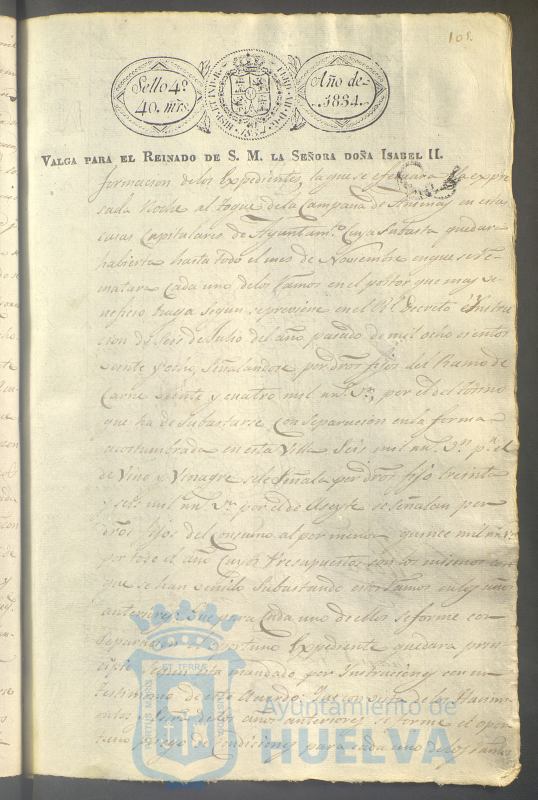 105.
Sello 4º
40. mrs.
Año de
1834.
VALGA PARA EL REINADO DE S. M. LA SEÑORA DOÑA ISABEL II.
formacion de los Expedientes, la que se efectuara la expre
sada Noche al toque de la Campana de Animas en estas
casas Capitulares de Ayuntam.to Cuya Subasta quedara
habierta hasta todo el mes de Noviembre en que se re
matara Cada uno de los Ramos en el postor que mas be
neficio haga segun se previene en el Rl. Decreto é Instruc
cion de seis de Julio del año pasado de mil ocho cientos
veinte y ocho, Señalandose por dros fijos del Ramo de
Carne veinte y cuatro mil rrs. vn, por el del
que ha de Subastarse con Separacion en la forma
acostumbrada en esta Villa Seis mil rrs. vn. pr. el
de Vino y Vinagre se le Señala por dros fijo treinta
y mil rrs. vn. por el de Aseyte se señalan por
dros fijos del Consumo al por menor quince mil rrs. vn.
por todo el año Cuyos Presupuestos son los mismos con
que se han venido Subastando estos Ramos en los años
anteriores: Que para Cada uno de ellos se forme con
Separacion el oportuno Expediente quedara prin
segun esta mandado por Instruccion y con un
testimonio de este Acuerdo: Que con vista de los
de los años anteriores se forme el opor
tuno pliego de Condiciones para cada uno de los Ramos
Ayuntamiento de
HUELVA